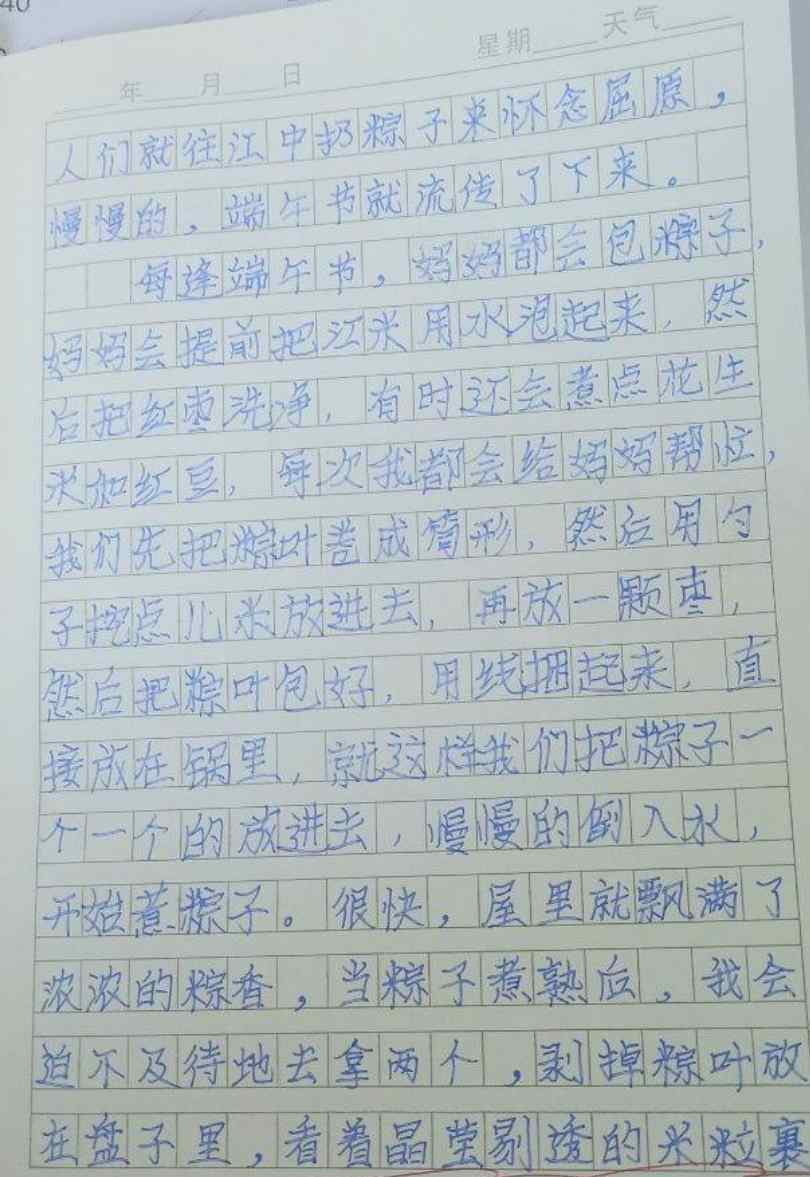 40
年 月 日 星期 天气
人们就往江中扔粽子来怀念屈原，
慢慢的，端午节就流传了下来。
每逢端午节，妈妈都会包粽子，
妈妈会提前把江米用水泡起来，然
后把红枣洗净，有时还会煮点花生
米和红豆，每次我都会给妈妈帮忙，
我们先把粽叶卷成筒形，然后用勺
子挖点儿米放进去，再放一颗枣，
然后把粽叶包好，用线捆起来，直
接放在锅里，就这样我们把粽子一
个一个的放进去，慢慢的倒入水，
开始煮粽子。很快，屋里就飘满了
浓浓的粽香，当粽子煮熟后，我会
迫不及待地去拿两个，剥掉粽叶放
在盘子里，看着晶莹剔透的米粒裹